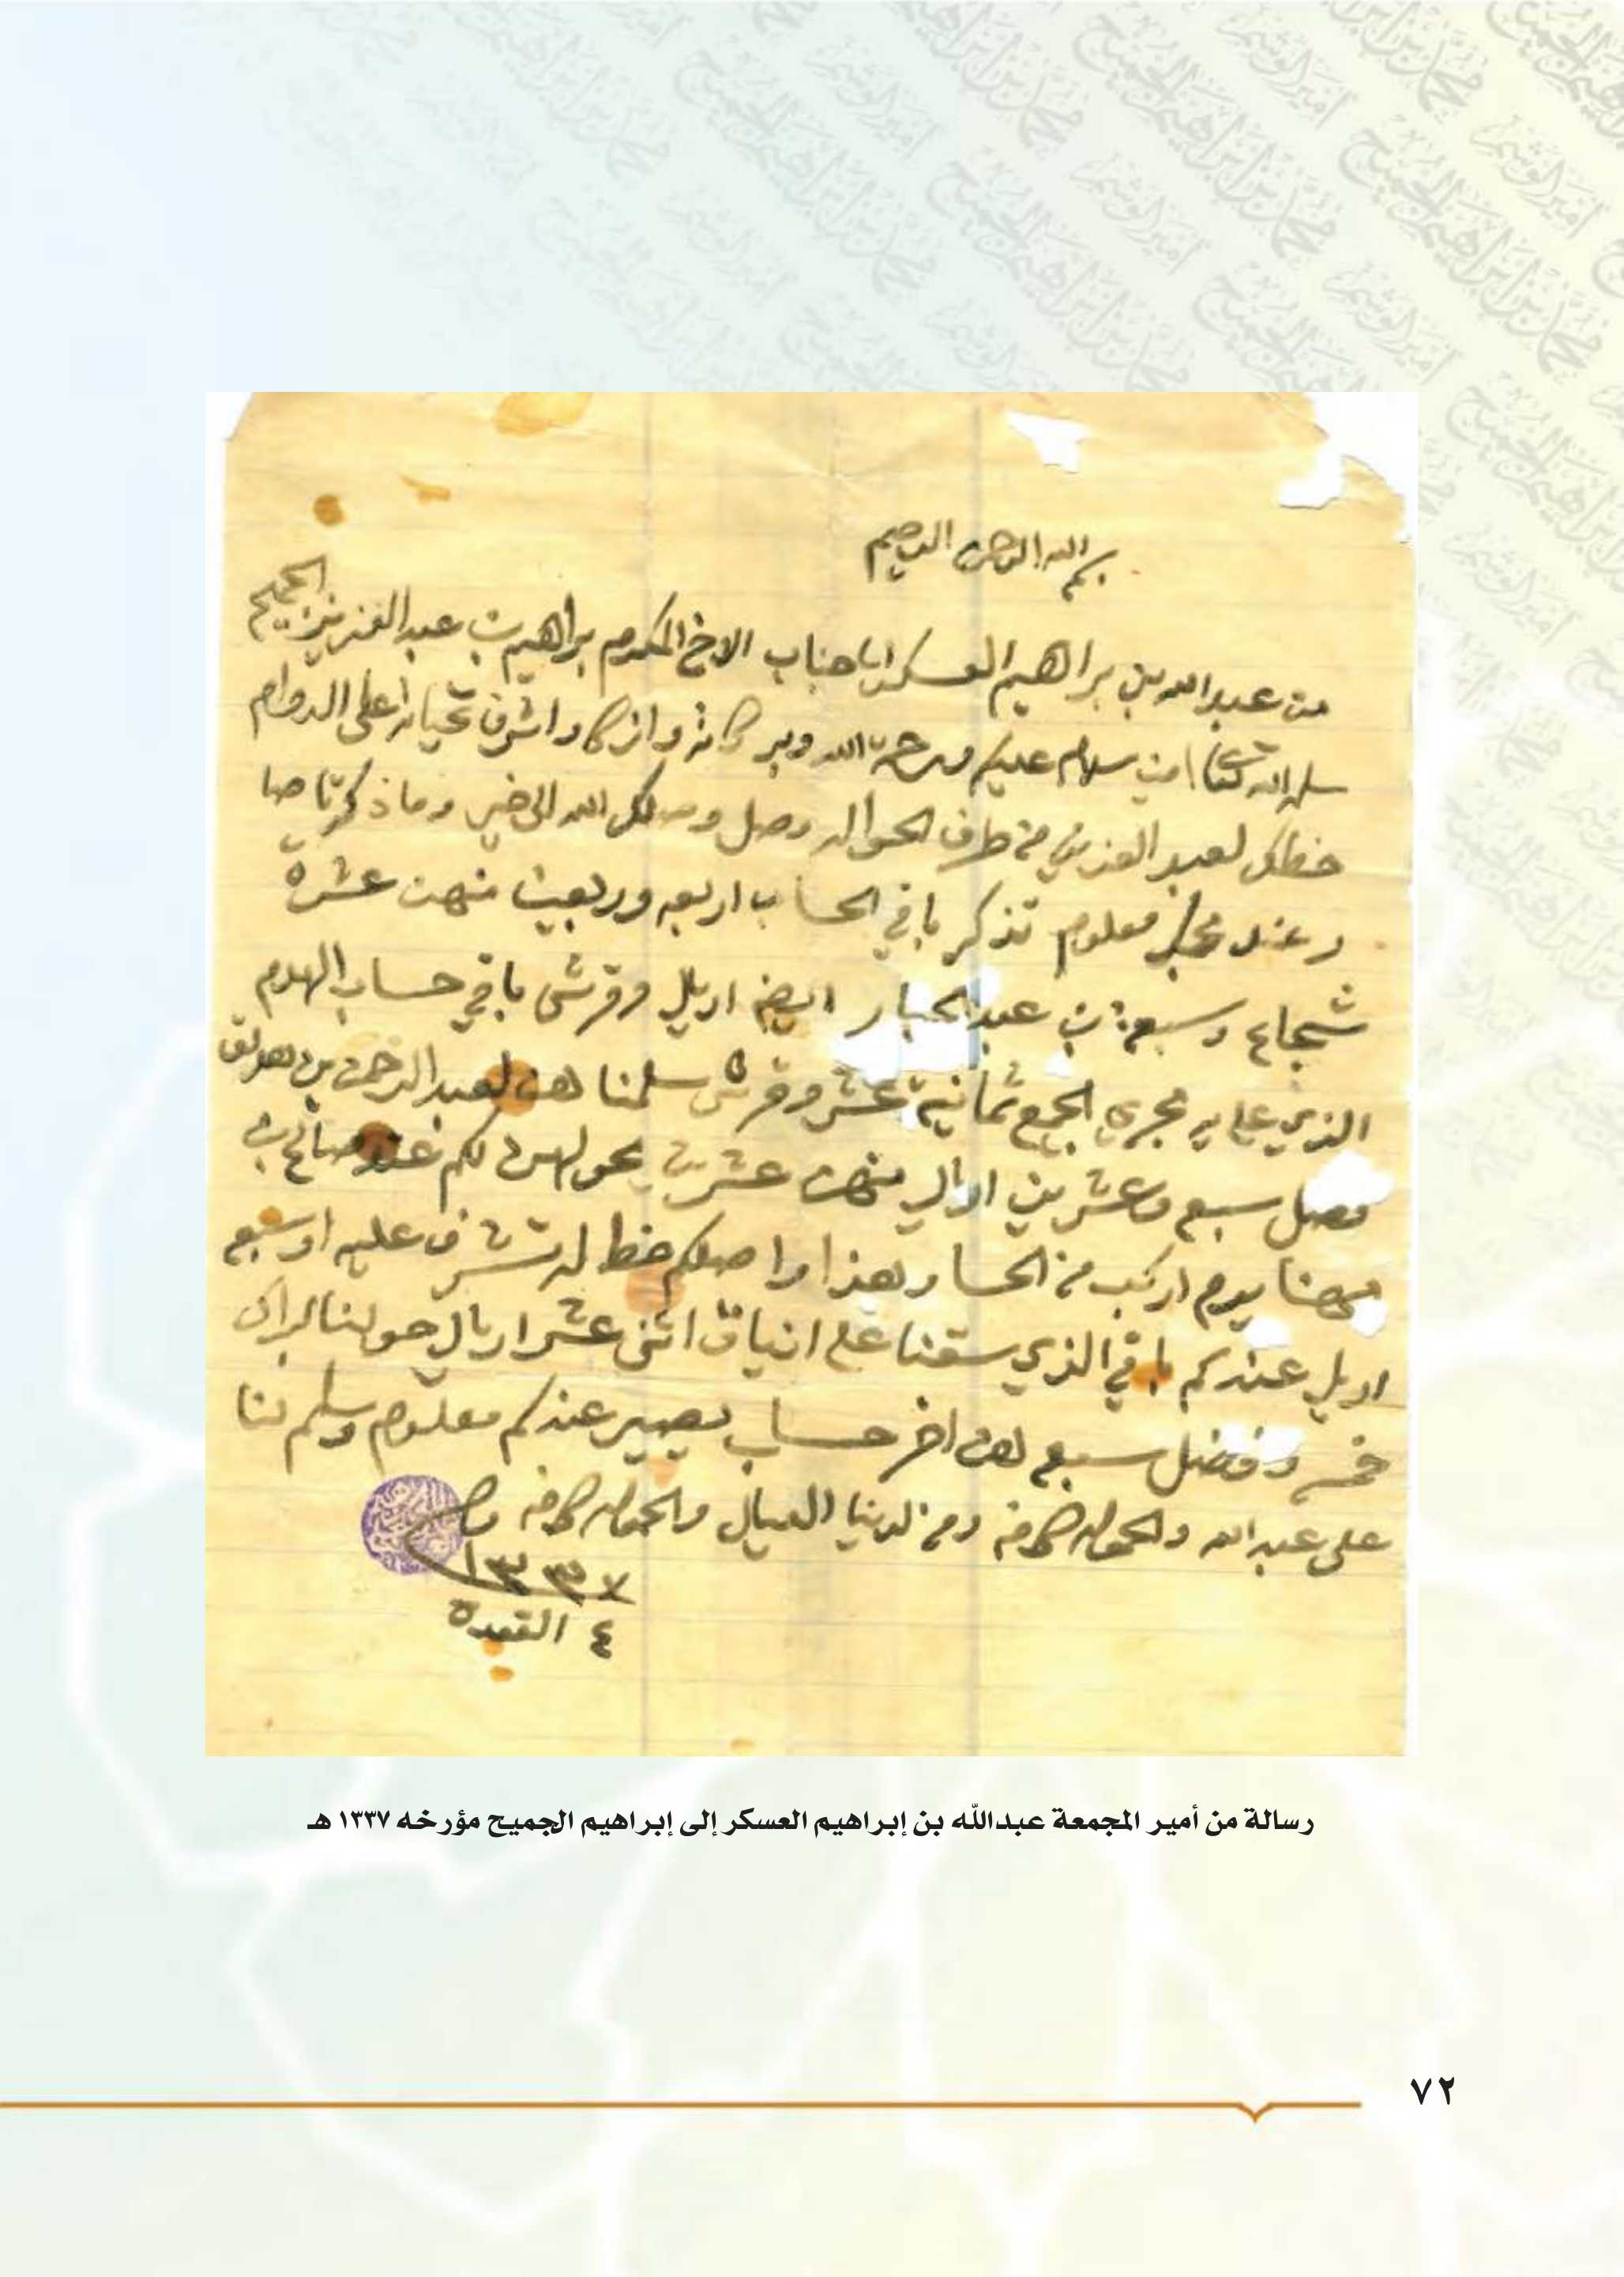 بسم الله الرحمن الرحيم
من عبدالله بن براهيم العسكر الى جناب الاخ المكرم براهيم بن عبدالعزيز الجميح
سلمه الله تعالى امين سلام عليكم ورحمة الله وبركاته وازكا واشرف تحياته على الدوام
خطك لعبد العزيز من طرف الحواله وصل وصلك الله الى خير وما ذكرت صا
ر عند محبك معلوم تذكر باقي الحساب اربعه وربعين منهن عشرة
شجاع وسبعة بن عبدالجبار ايضا اريل وقرش باقي حساب الهدم
الذي على يد مجري الجمع ثمانية عشر وقرش سلمنا هن لعبدالرحمن بن
وصل سبع وعشرين اريال منهن عشرين لكم عند صالح بن
مهنا يوم اركب من الحسا وهذا واصلكم خط له تشرف عليه اوسبع
اريل عندكم باقي الذي سقنا على انياق اثنى عشر اريال حولنا لبراك
خمس وفضل سبع لهن اخر حساب يصير عندكم معلوم وسلم لنا
على عبدالله والحموله كافه ومن لدينا العيال والحموله كافه
١٣٣٧
٤ القعدة
رسالة من أمير المجمعة عبدالله بن إبراهيم العسكر إلى إبراهيم الجميح مؤرخه ١٣٣٧ هـ
٧٢